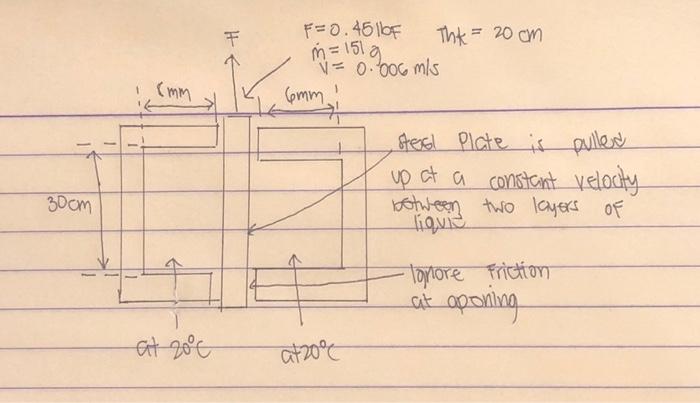 F
F=0.45lbF Thk = 20 cm
ṁ = 151 g
V = 0.006 m/s
6mm
steel Plate is pulled
up at a constant velocity
between two layers of
liquid
30cm
Ignore Friction
at opening
at 20°C
at 20°C